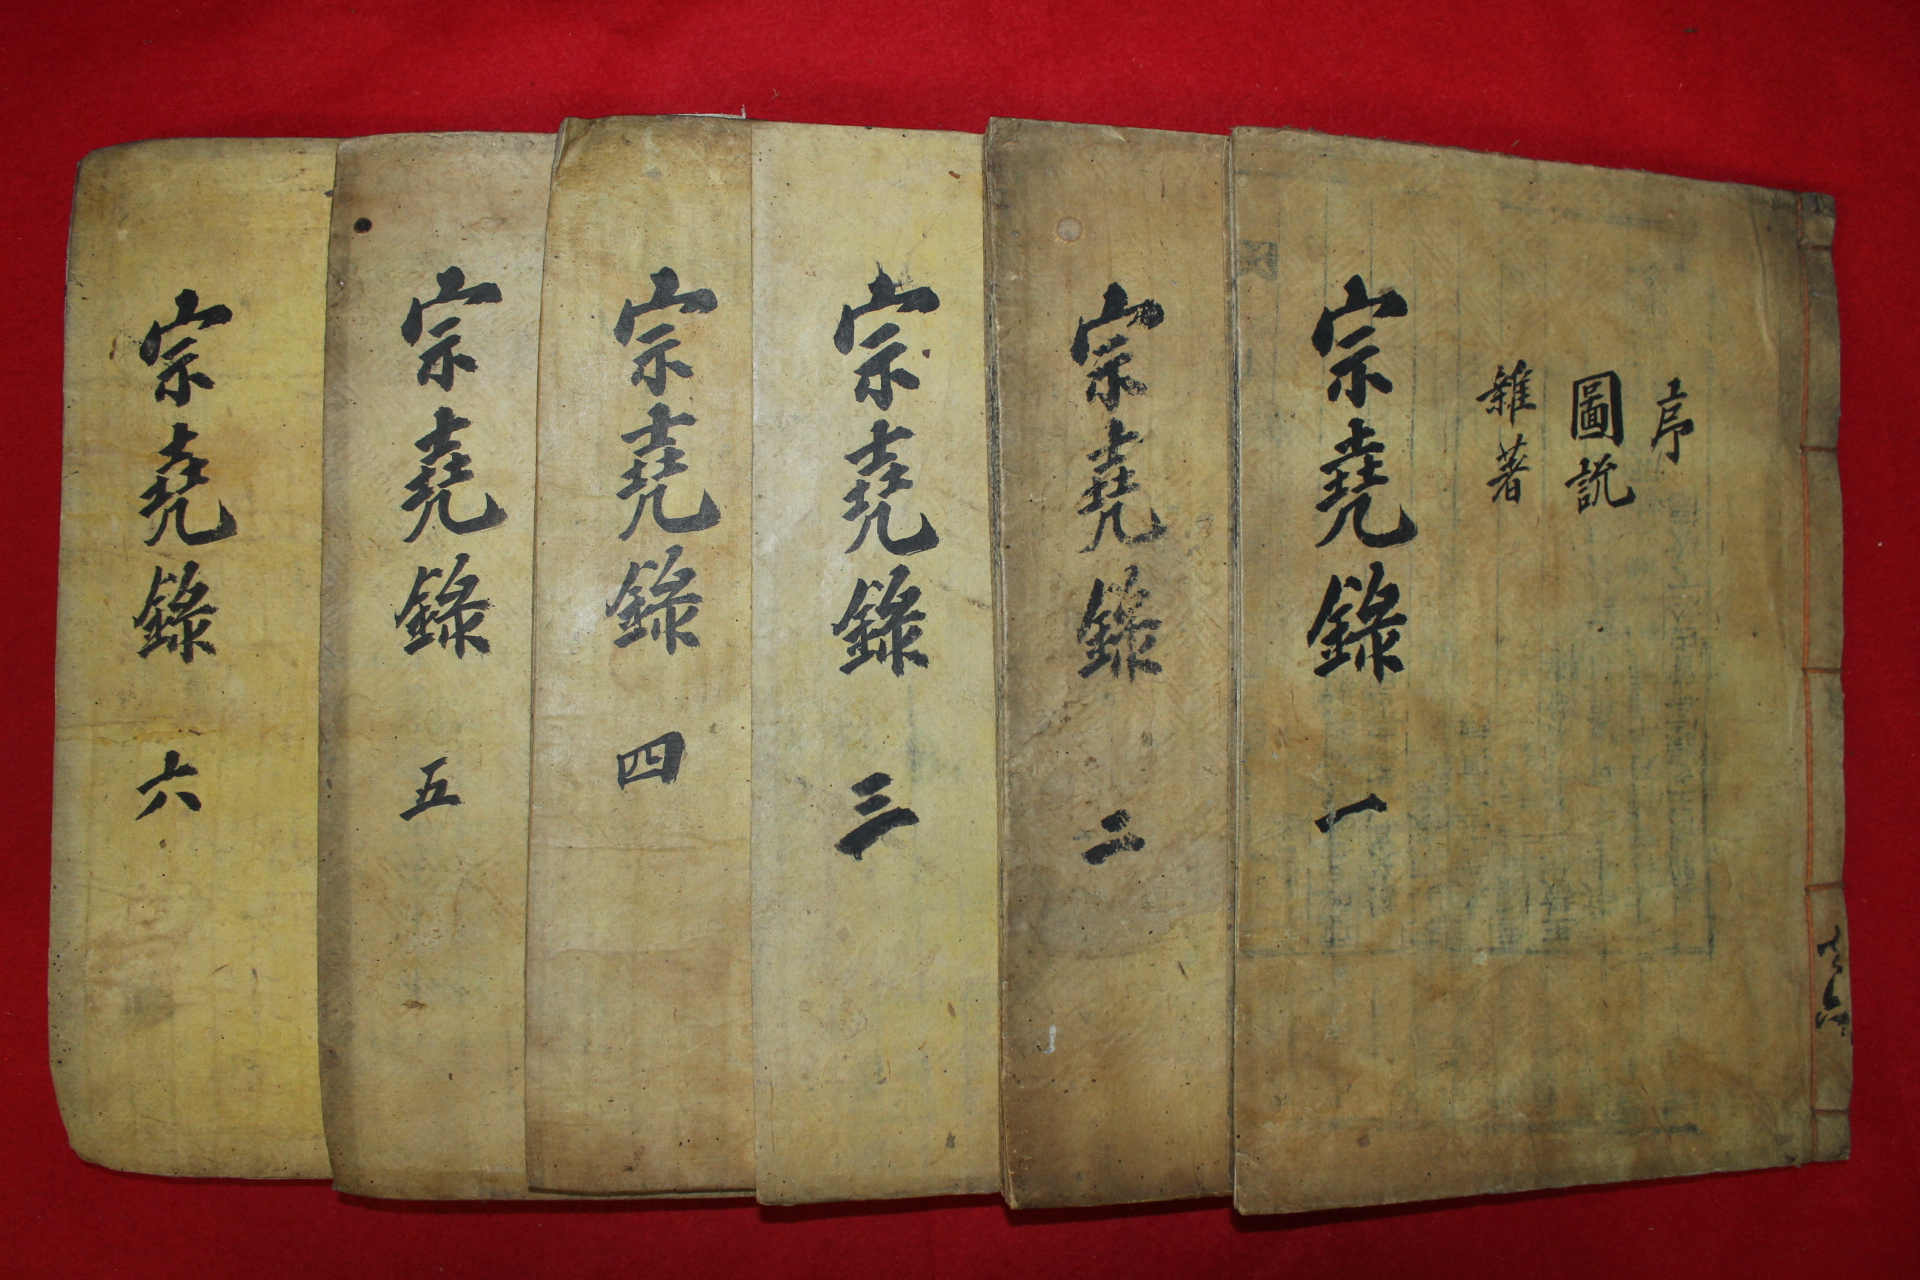 序
圖說
雜著
宗堯錄 一
宗堯錄 二
宗堯錄 三
宗堯錄 四
宗堯錄 五
宗堯錄 六